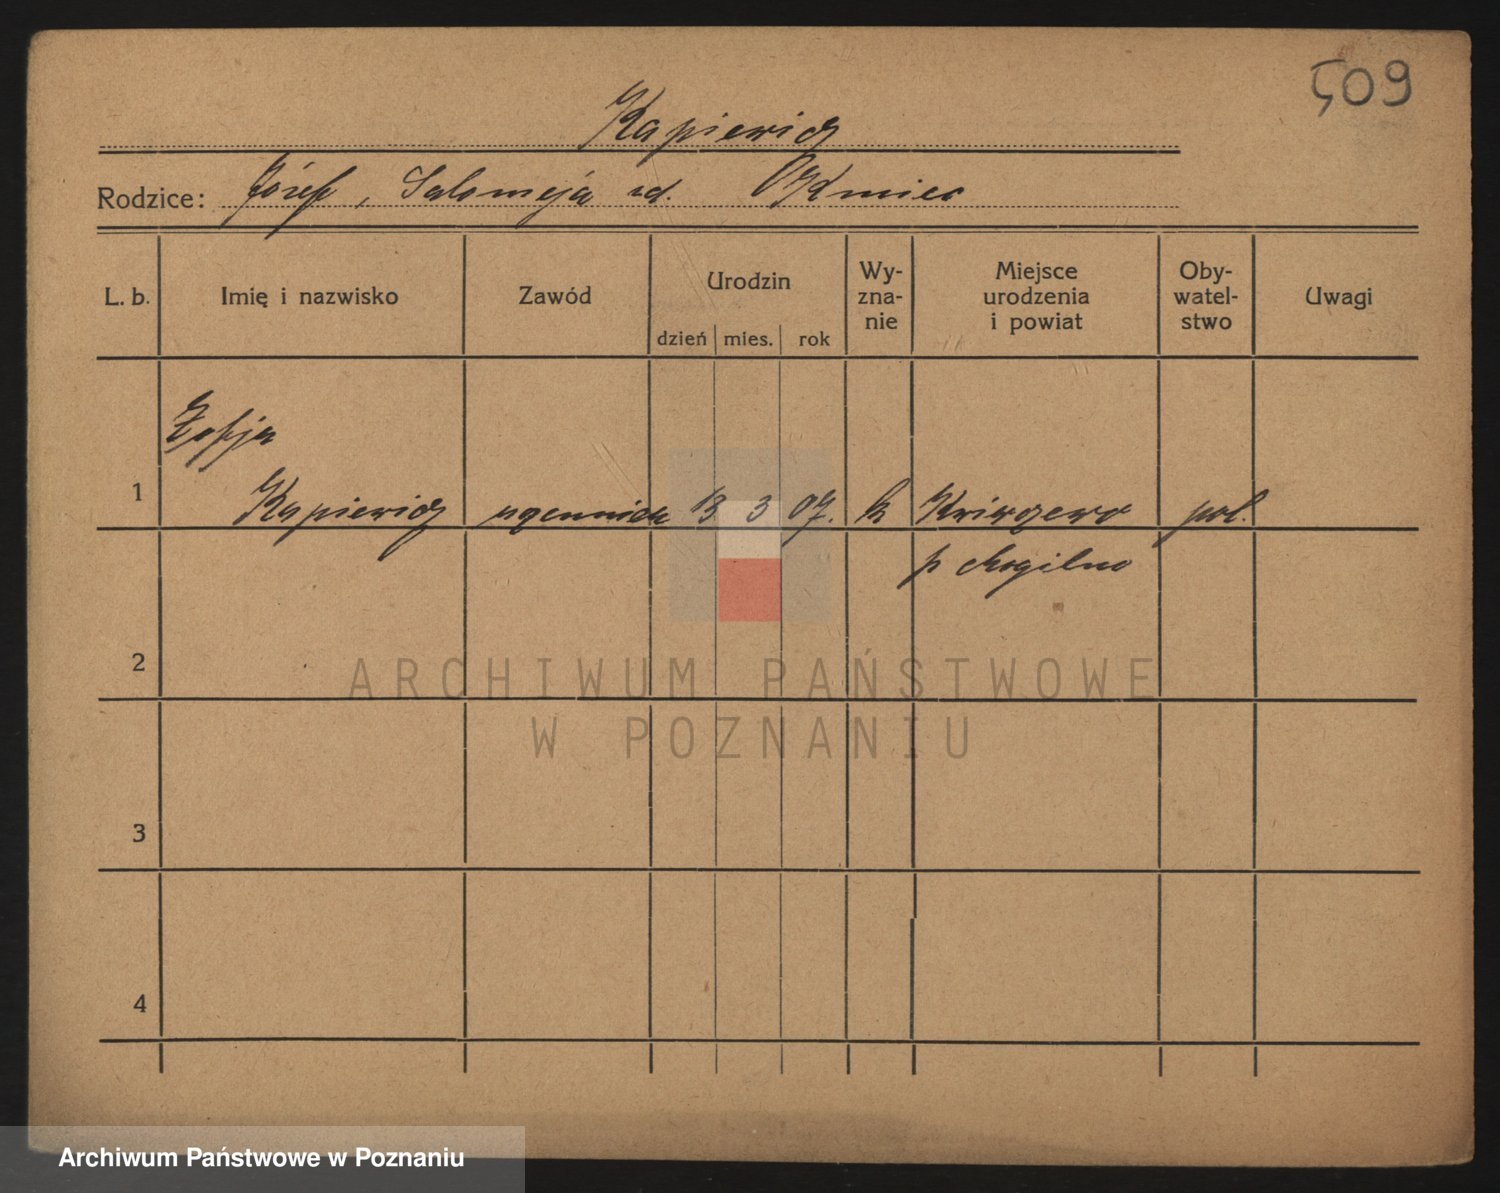 509
Kapiewicz
Rodzice: Józef, Salomeja zd. Kmiec
L. b.
Imię i nazwisko
Zawód
Urodzin
dzień mies. rok
Wy-
zna-
nie
Miejsce
urodzenia
i powiat
Oby-
watel-
stwo
Uwagi
Zofja
1 Kapiewicz uczennica 13 3 07. k pol.
p Mogilno
2
ARCHIWUM PAŃSTWOWE
W POZNANIU
3
4
Archiwum Państwowe w Poznaniu